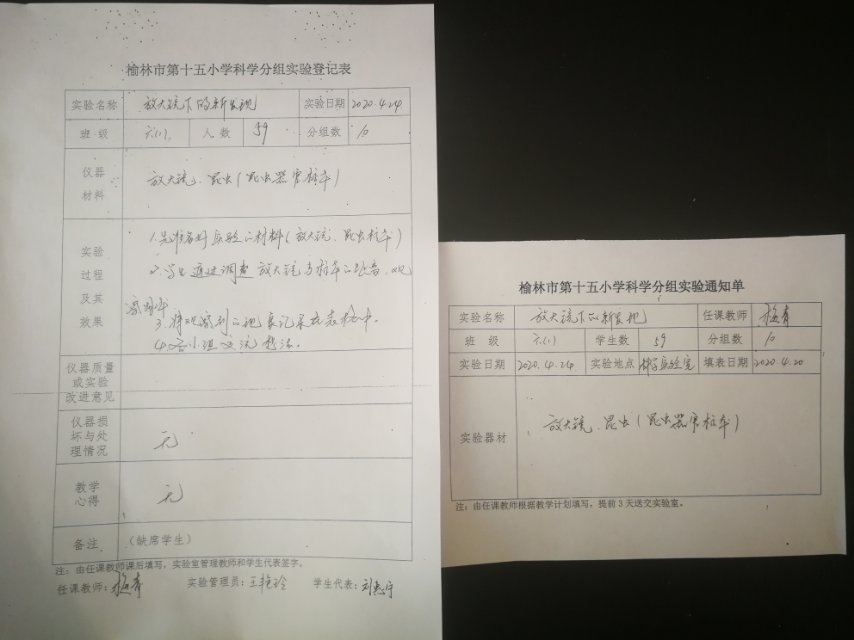 榆林市第十五小学科学分组实验登记表
实验名称 放大镜下的新发现 实验日期 2020.4.24
班 级 六(1) 人 数 59 分组数 10
仪器
材料
放大镜、昆虫(昆虫器官标本)
实验
过程
及其
效果
1.先准备好实验的材料(放大镜、昆虫标本)
2.学生通过调整放大镜与标本的距离,观
察标本
3.将观察到的现象记录在表格中。
4.各小组交流想法。
仪器质量
或实验
改进意见
仪器损
坏与处
理情况
无
教学
心得
无
备注 (缺席学生)
注:由任课教师课后填写,实验室管理教师和学生代表签字。
任课教师: 实验管理员:王艳玲 学生代表:
榆林市第十五小学科学分组实验通知单
实验名称 放大镜下的新发现 任课教师
班 级 六(1) 学生数 59 分组数 10
实验日期 2020.4.24 实验地点 科学实验室 填表日期 2020.4.20
实验器材 放大镜、昆虫(昆虫器官标本)
注:由任课教师根据教学计划填写,提前3天送交实验室。